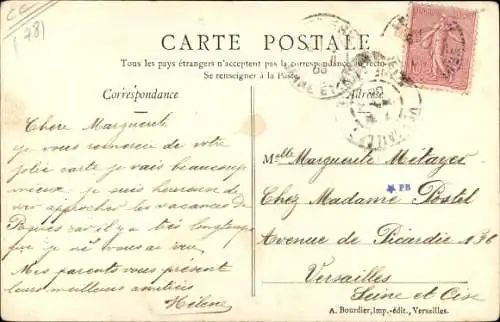 CC
(78)
CARTE POSTALE
Tous les pays étrangers n'acceptent pas la correspondance au recto
Se renseigner à la Poste
Correspondance
Adresse
Chere Marguerite
je vous remercie de votre
jolie carte je vais beaucoup
mieux. je suis heureuse de
voir approcher les vacances de
Pâques car il y a très longtemps
que je ne vous ai vu
Mes parents vous présent
leurs meilleurs amitiés
Hélène
Melle Marguerite Métayer
PB
Chez Madame Postel
Avenue de Picardie 136
Versailles
Seine et Oise
A. Bourdier, Imp.-édit., Versailles.